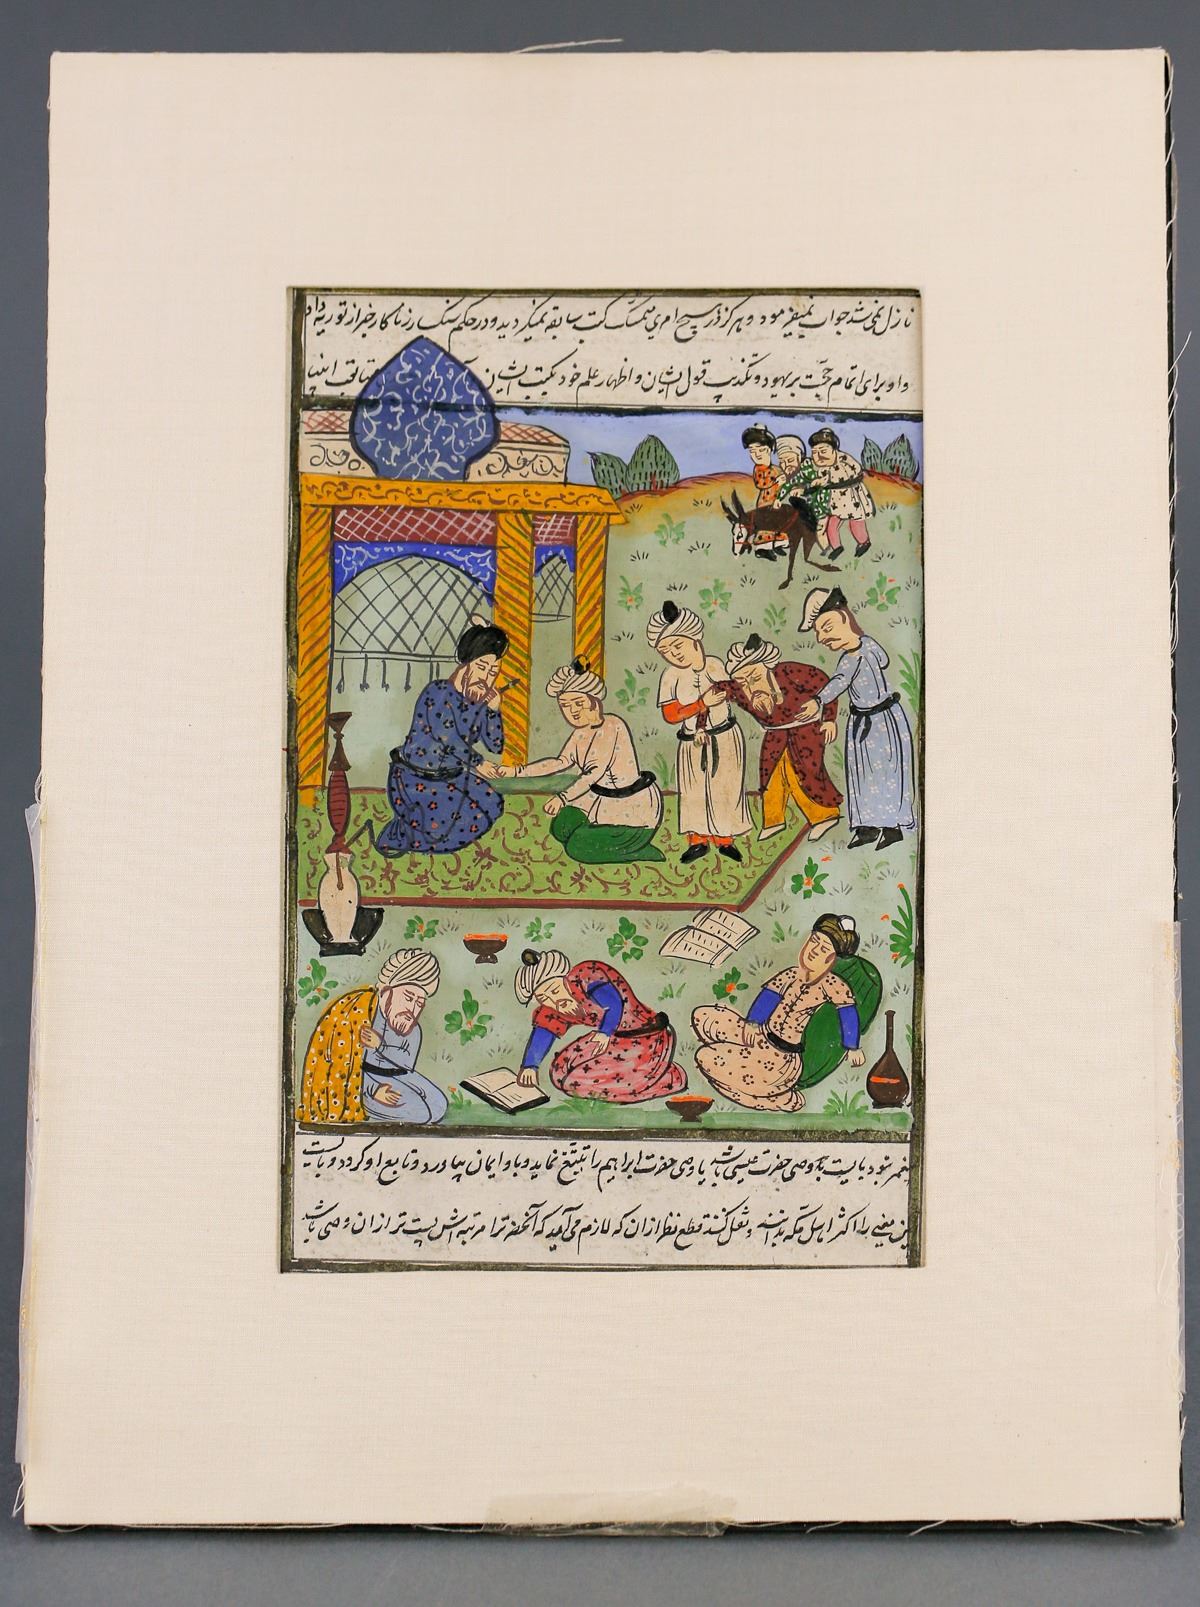 نازل نمی شد جواب نمیفرمود و هرگز در هیچ امری متمسک بکتب سابقه نمیگردید و در حکم سنگسار زناکار خبر از توریه داد
و او برای اتمام حجت بر یهود و تکذیب قول ایشان و اظهار علم خود بکتب ایشان
پیغمبر نبود بایست باو وصی حضرت عیسی باشد یا وصی حضرت ابراهیم را تبلیغ نماید و باو ایمان بیاورد و تابع او گردد و بایست
این معنی را اکثر اهل مکه بدانند و نقل کنند قطع نظر از ان که لازم می آید که آنحضرترا مرتبه اش پست تر از ان وصی باشد